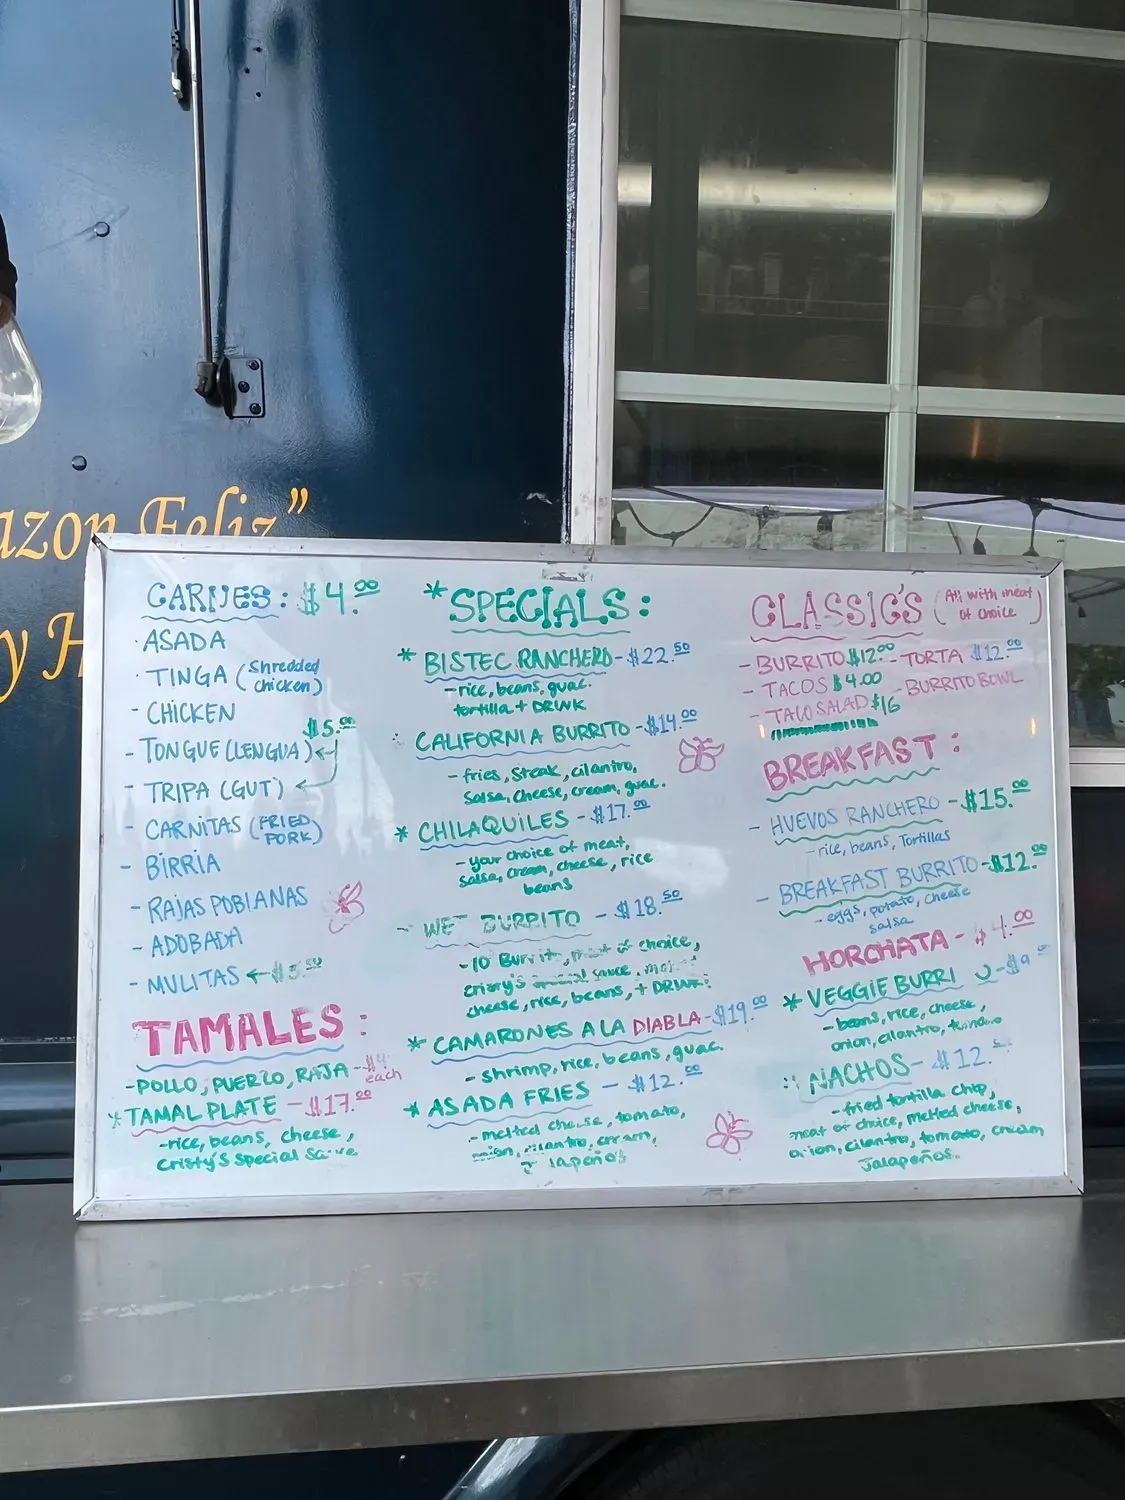 azon Feliz"
y H
CARNES: $4.00
· ASADA
· TINGA (Shredded
chicken)
- CHICKEN
$5.00
- TONGUE (LENGUA)
- TRIPA (GUT)
- CARNITAS (FRIED
PORK)
- BIRRIA
- RAJAS POBLANAS
- ADOBADA
- MULITAS
TAMALES:
- POLLO, PUERCO, RAJA - $4
each
* TAMAL PLATE - $17.00
- rice, beans, cheese,
Cristy's Special Sauce
* SPECIALS:
* BISTEC RANCHERO - $22.50
- rice, beans, guac.
tortilla + DRINK
CALIFORNIA BURRITO - $14.00
- fries, Steak, cilantro,
Salsa, cheese, cream, guac.
* CHILAQUILES - $17.00
- your choice of meat,
salsa, cream, cheese, rice
beans
- WET BURRITO - $18.50
- 10 Burrito, meat of choice,
cristy's special sauce,
cheese, rice, beans, + DRINK.
* CAMARONES A LA DIABLA - $19.00
- shrimp, rice, beans, guac.
* ASADA FRIES - $12.00
- melted cheese, tomato,
onion, cilantro, cream,
Jalapeños
CLASSIC'S (All with meat
of choice)
- BURRITO $12.00 - TORTA $12.00
- TACOS $4.00 - BURRITO BOWL
- TACO SALAD $16
BREAKFAST:
- HUEVOS RANCHERO - $15.00
- rice, beans, Tortillas
- BREAKFAST BURRITO - $12.00
- eggs, potato, cheese
salsa
HORCHATA - $4.00
* VEGGIE BURRI O - $9
- beans, rice, cheese,
onion, cilantro,
NACHOS - $12.
- fried tortilla chip,
meat of choice, melted cheese,
onion, cilantro, tomato, cream
Jalapeños.